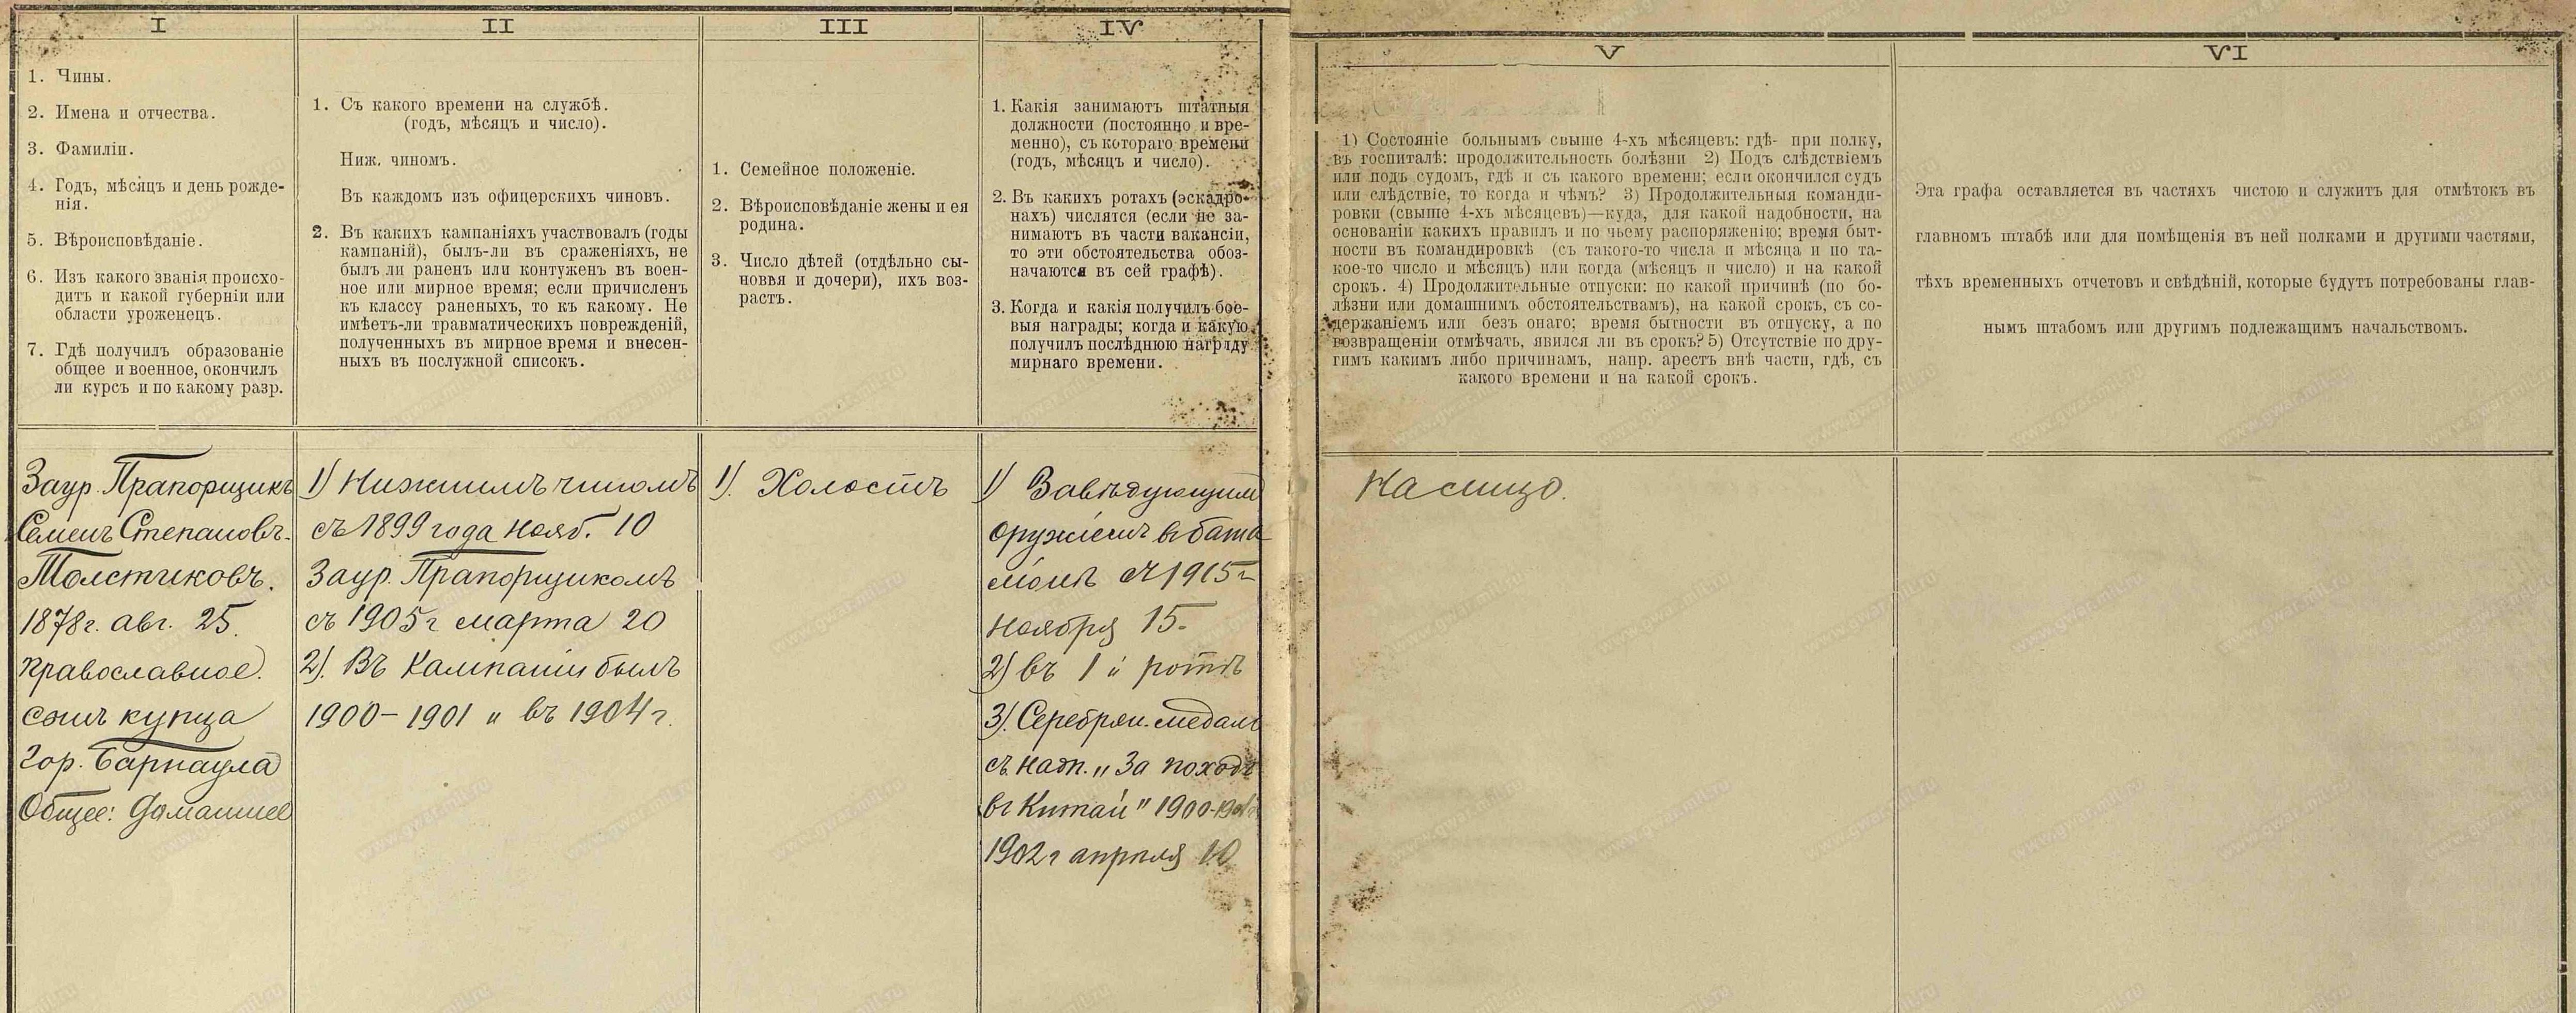 I
1. Чины.
2. Имена и отчества.
3. Фамиліи.
4. Годъ, мѣсяцъ и день рожде-
нія.
5. Вѣроисповѣданіе.
6. Изъ какого званія происхо-
дитъ и какой губерніи или
области уроженецъ.
7. Гдѣ получилъ образованіе
общее и военное, окончилъ
ли курсъ и по какому разр.
Заур. Прапорщикъ
Семенъ Степановъ.
Толстиковъ.
1878 г. авг. 25.
православное.
сынъ купца
гор. Барнаула
Общее: Домашнее
II
1. Съ какого времени на службѣ.
(годъ, мѣсяцъ и число).
Ниж. чиномъ.
Въ каждомъ изъ офицерскихъ чиновъ.
2. Въ какихъ кампаніяхъ участвовалъ (годы
кампаній), былъ-ли въ сраженіяхъ, не
былъ ли раненъ или контуженъ въ воен-
ное или мирное время; если причисленъ
къ классу раненыхъ, то къ какому. Не
имѣетъ-ли травматическихъ поврежденій,
полученныхъ въ мирное время и внесен-
ныхъ въ послужной списокъ.
1) Нижнимъ чиномъ
съ 1899 года нояб. 10
Заур. Прапорщикомъ
съ 1905 г. марта 20
2). Въ Кампаніи былъ
1900-1901 и въ 1904 г.
III
1. Семейное положеніе.
2. Вѣроисповѣданіе жены и ея
родина.
3. Число дѣтей (отдѣльно сы-
новья и дочери), ихъ воз-
растъ.
1). Холостъ
IV
1. Какія занимаютъ штатныя
должности (постоянно и вре-
менно), съ котораго времени
(годъ, мѣсяцъ и число).
2. Въ какихъ ротахъ (эскадро-
нахъ) числятся (если не за-
нимаютъ въ части вакансіи,
то эти обстоятельства обоз-
начаются въ сей графѣ).
3. Когда и какія получилъ бое-
выя награды; когда и какую
получилъ послѣднюю награду
мирнаго времени.
1) Завѣдующим
оружіемъ въ бата
ліонѣ съ 1915 г
ноября 15.
2) въ 1 й ротѣ
3). Серебрян. медаль
съ надп. „За походъ
въ Китай" 1900-1901
1902 г апрѣля 10
V
1) Состояніе больнымъ свыше 4-хъ мѣсяцевъ: гдѣ- при полку,
въ госпиталѣ: продолжительность болѣзни 2) Подъ слѣдствіемъ
или подъ судомъ, гдѣ и съ какого времени; если окончился судъ
или слѣдствіе, то когда и чѣмъ? 3) Продолжительныя команди-
ровки (свыше 4-хъ мѣсяцевъ)—куда, для какой надобности, на
основаніи какихъ правилъ и по чьему распоряженію; время быт-
ности въ командировкѣ (съ такого-то числа и мѣсяца и по та-
кое-то число и мѣсяцъ) или когда (мѣсяцъ и число) и на какой
срокъ. 4) Продолжительные отпуски: по какой причинѣ (по бо-
лѣзни или домашнимъ обстоятельствамъ), на какой срокъ, съ со-
держаніемъ или безъ онаго; время бытности въ отпуску, а по
возвращеніи отмѣчать, явился ли въ срокъ? 5) Отсутствіе по дру-
гимъ какимъ либо причинамъ, напр. арестъ внѣ части, гдѣ, съ
какого времени и на какой срокъ.
На лицо.
VI
Эта графа оставляется въ частяхъ чистою и служитъ для отмѣтокъ въ
главномъ штабѣ или для помѣщенія въ ней полками и другими частями,
тѣхъ временныхъ отчетовъ и свѣдѣній, которые будутъ потребованы глав-
нымъ штабомъ или другимъ подлежащимъ начальствомъ.